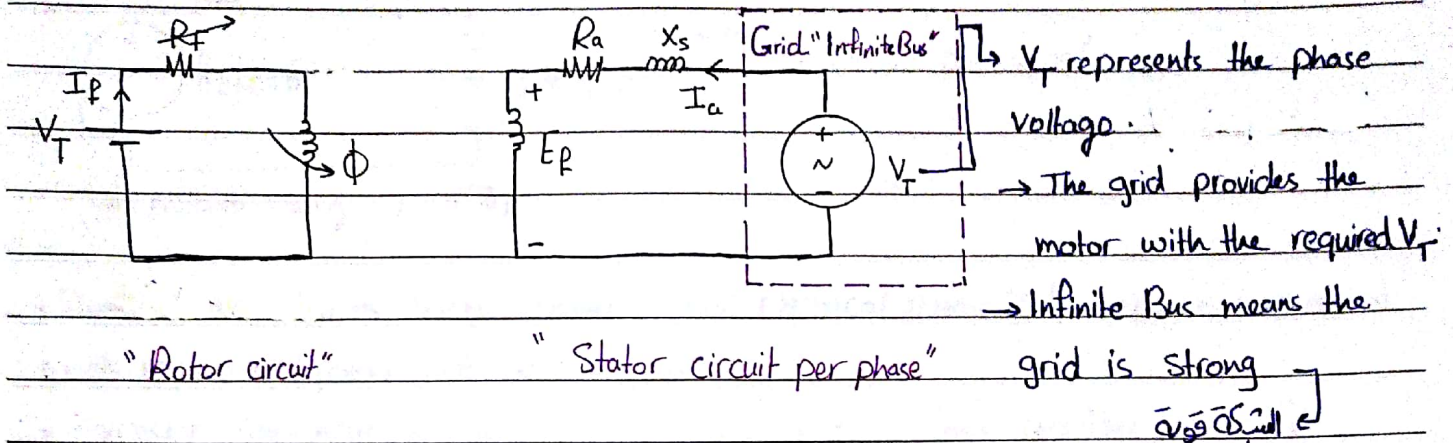 R_f
I_f
V_T
ϕ
R_a X_s
I_a
+
E_f
-
Grid "Infinite Bus"
+
~
-
V_T
↳ V_T represents the phase
voltage.
→ The grid provides the
motor with the required V_T.
→ Infinite Bus means the
grid is strong
الشبكة قوية
"Rotor circuit"
"Stator circuit per phase"